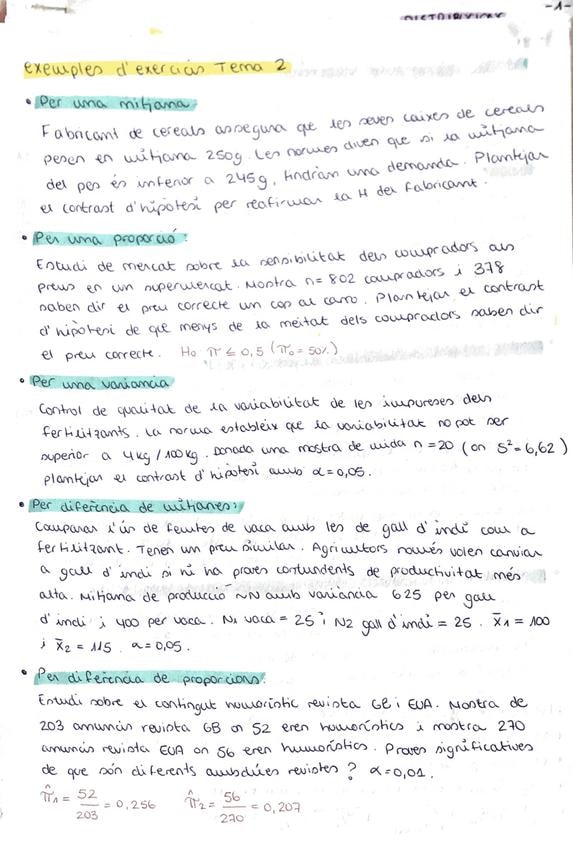 -1-
exemples d'exercicis Tema 2
• Per una mitjana:
Fabricant de cereals assegura que les seves caixes de cereals
pesen en mitjana 250g. Les normes diuen que si la mitjana
del pes és inferior a 245g, tindran una demanda. Plantejar
el contrast d'hipòtesi per reafirmar la H del fabricant.
• Per una proporció:
Estudi de mercat sobre la sensibilitat dels compradors als
preus en un supermercat. Mostra n = 802 compradors i 378
saben dir el preu correcte un cop al carro. Plantejar el contrast
d'hipòtesi de que menys de la meitat dels compradors saben dir
el preu correcte. H₀ π ≤ 0,5 (π₀ = 50%)
• Per una variancia
Control de qualitat de la variabilitat de les impureses dels
fertilitzants. La norma estableix que la variabilitat no pot ser
superior a 4kg/100kg. Donada una mostra de mida n = 20 (on S² = 6,62)
plantejar el contrast d'hipòtesi amb α = 0,05.
• Per diferència de mitjanes:
Comparar l'ús de femtes de vaca amb les de gall d'indi com a
fertilitzant. Tenen un preu similar. Agricultors només volen canviar
a gall d'indi si hi ha proves contundents de productivitat més
alta. Mitjana de producció ~N amb variància 625 per gall
d'indi i 400 per vaca. N₁ vaca = 25 i N₂ gall d'indi = 25. x̄₁ = 100
i x̄₂ = 115. α = 0,05.
• Per diferència de proporcions:
Estudi sobre el contingut humorístic revista GB i EUA. Mostra de
203 anuncis revista GB on 52 eren humorístics i mostra 270
anuncis revista EUA on 56 eren humorístics. Proves significatives
de que són diferents ambdúes revistes? α = 0,01.
π̂₁ = 52/203 = 0,256 π̂₂ = 56/270 = 0,207